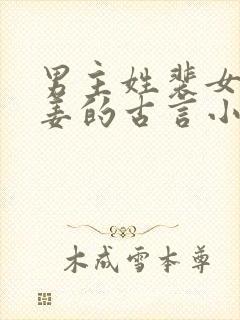 男主姓裴女
姜的古言小
木成雪本尊